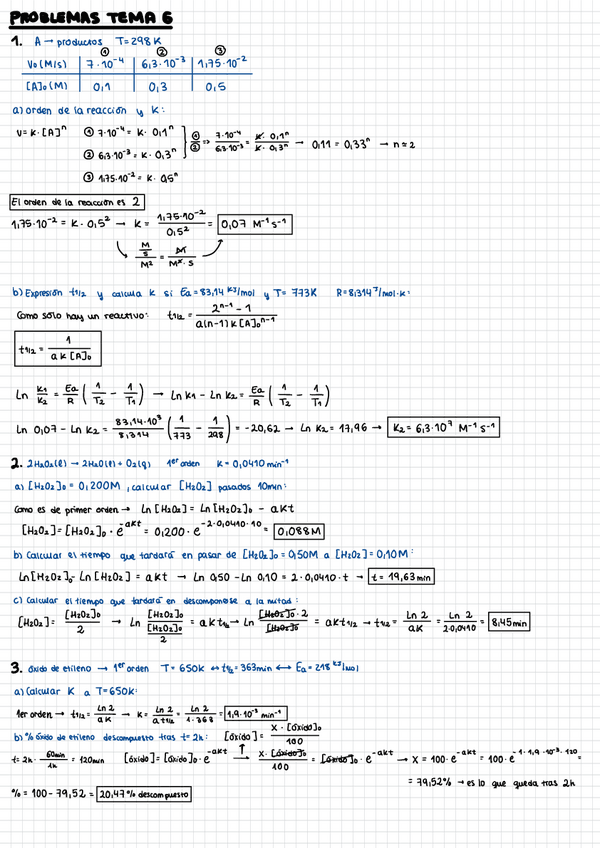 PROBLEMAS TEMA 6
1. A → productos T=298K
① ② ③
V₀ (M/s) 7·10⁻⁴ 6,3·10⁻³ 1,75·10⁻²
[A]₀ (M) 0,1 0,3 0,5
a) orden de la reacción y K:
V=K·[A]ⁿ ① 7·10⁻⁴ = K· 0,1ⁿ ①/② ⇒ 7·10⁻⁴/6,3·10⁻³ = K· 0,1ⁿ/K· 0,3ⁿ → 0,11 = 0,33ⁿ → n≈2
② 6,3·10⁻³ = K· 0,3ⁿ
③ 1,75·10⁻² = K· 0,5ⁿ
El orden de la reacción es 2
1,75·10⁻² = K· 0,5² → K = 1,75·10⁻²/0,5² = 0,07 M⁻¹ s⁻¹
M/s/M² = M/M²·s
b) Expresión t1/2 y calcula K si Ea = 83,14 KJ/mol y T= 773K R=8,314 J/mol·K:
Como sólo hay un reactivo: t1/2 = 2ⁿ⁻¹ - 1/a(n-1)K[A]₀ⁿ⁻¹
t1/2 = 1/aK[A]₀
Ln K₁/K₂ = Ea/R (1/T₂ - 1/T₁) → Ln K₁ - Ln K₂ = Ea/R (1/T₂ - 1/T₁)
Ln 0,07 - Ln K₂ = 83,14·10³/8,314 (1/773 - 1/298) = -20,62 → Ln K₂ = 17,96 → K₂ = 6,3·10⁷ M⁻¹ s⁻¹
2. 2H₂O₂(l) → 2H₂O(l) + O₂(g) 1er orden K = 0,0410 min⁻¹
a) [H₂O₂]₀ = 0,200M , calcular [H₂O₂] pasados 10min:
Como es de primer orden → Ln [H₂O₂] = Ln [H₂O₂]₀ - aKt
[H₂O₂] = [H₂O₂]₀ · e^-aKt = 0,200 · e^-2·0,0410·10 = 0,088M
b) Calcular el tiempo que tardará en pasar de [H₂O₂]₀ = 0,50M a [H₂O₂] = 0,10M:
Ln[H₂O₂]₀ - Ln [H₂O₂] = aKt → Ln 0,50 - Ln 0,10 = 2·0,0410·t → t = 19,63min
c) Calcular el tiempo que tardará en descomponerse a la mitad:
[H₂O₂] = [H₂O₂]₀/2 → Ln [H₂O₂]₀/[H₂O₂]₀/2 = aKt1/2 → Ln [H₂O₂]₀·2/[H₂O₂]₀ = aKt1/2 → t1/2 = Ln 2/aK = Ln 2/2·0,0410 = 8,45min
3. óxido de etileno → 1er orden T= 650K ↔ t1/2 = 363min ↔ Ea = 218 KJ/mol
a) Calcular K a T=650K:
1er orden → t1/2 = Ln 2/aK → K = Ln 2/a t1/2 = Ln 2/1·363 = 1,9·10⁻³ min⁻¹
b) % óxido de etileno descompuesto tras t= 2h: [óxido] = X·[óxido]₀/100
t= 2h · 60min/1h = 120min [óxido] = [óxido]₀ · e^-aKt ↑ → X·[óxido]₀/100 = [óxido]₀ · e^-aKt → X = 100· e^-aKt = 100· e^-1·1,9·10⁻³·120 =
= 79,52% → es lo que queda tras 2h
% = 100 - 79,52 = 20,47% descompuesto